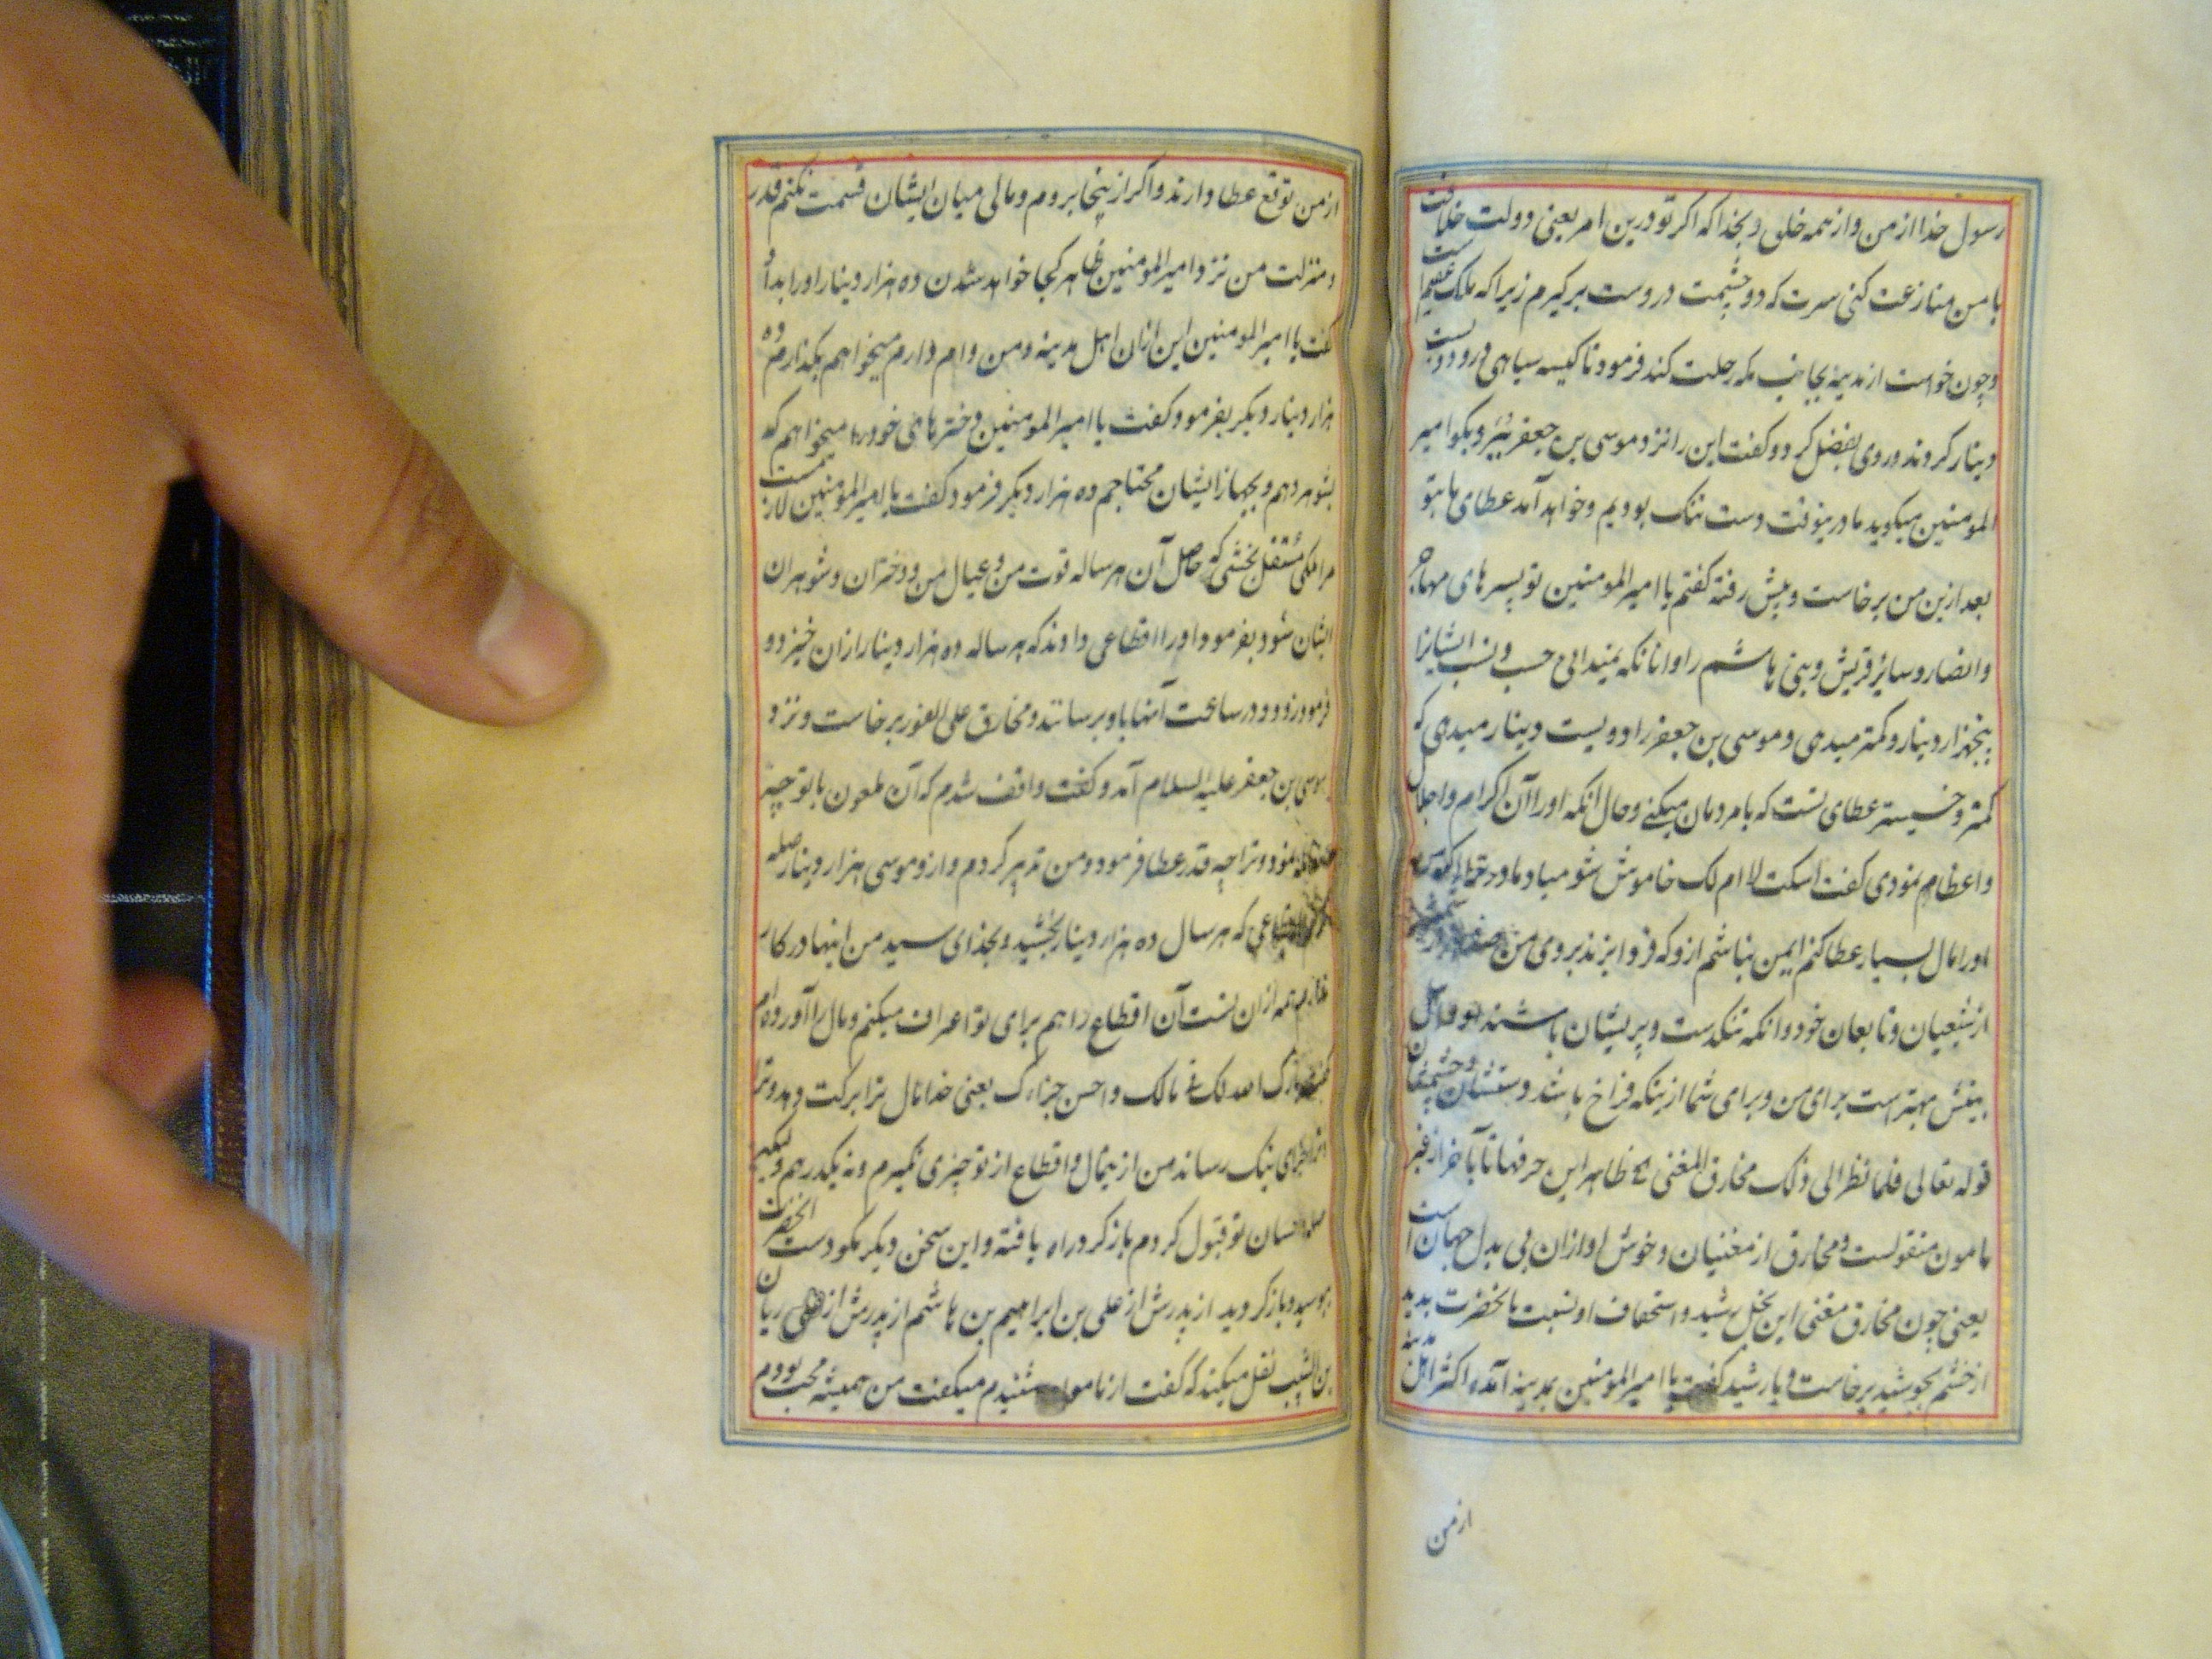 رسول خدا از من و از همه خلق و بخدا که اکر تو درین امر یعنی دولت خلافت
با من منازعت کنی سرت که دو چشمت دروست برکیرم زیرا که ملک عقیم است
و چون خواست از مدینه بجانب مکه رحلت کند فرمود تا کیسه سیاهی درو دویست
دینار کردند و روی بفضل کرد و کفت این را نزد موسی بن جعفر ببر و بکو امیر
المومنین میکوید ما درینوقت دست تنک بودیم و خواهد آمد عطای ما بتو
بعد ازین من برخاست و پیش رفته کفتم یا امیر المومنین تو پسرهای مهاجر
و انصار و سایر قریش و بنی هاشم را و انانکه نمیدانی حسب و نسب ایشانرا
پنجهزار دینار و کمتر میدهی و موسی بن جعفر را دویست دینار میدهی که
کمتر و خسیستر عطای تست که با مردمان میکنی و حال انکه او را آن اکرام و اجلال
و اعظام نمودی کفت اسکت لا ام لک خاموش شو مبادا مادر ترا
او را مال بسیار عطا کنم ایمن نباشم ازو که فردا بزند بروی من صد هزار شمشیر
از شیعیان و تابعان خود و انکه تنکدست و پریشان باشند او و اهل
بیتش بهتر است برای من و برای شما ازینکه فراخ باشد دستشان و چشمشان
قوله تعالی فلما نظر الی ذلک مخارق المغنی الخ ظاهر این حرفها تا بآخر از قبر
مامون منقولست و مخارق از مغنیان و خوش اوازان بی بدل جهان است
یعنی چون مخارق مغنی این بخل رشید و استخفاف او نسبت بالحضرت بدید
از خشم بجوشید برخاست و بارشید کفت یا امیر المومنین بمدینه آمده اکثر اهل مدینه
از من
از من توقع عطا دارند و اکر از ینجا بروم و مالی میان ایشان قسمت نکنم قدر
و منزلت من نزد امیر المومنین ظاهر کجا خواهد شدن ده هزار دینار او را بداد و
کفت یا امیر المومنین این ازان اهل مدینه و من وام دارم میخواهم بکذارم ده
هزار دینار دیکر بفرمود و کفت یا امیر المومنین دخترهای خود را میخواهم که
بشوهر دهم و بجهاز ایشان محتاجم ده هزار دیکر فرمود و کفت یا امیر المومنین لازمست
مرا ملکی مستقل بخشی که حاصل آن هر ساله قوت من و عیال من و دختران و شوهران
ایشان شود بفرمود او را اقطاعی دادند که هر ساله ده هزار دینار ازان خیزد و
فرمود زود و در ساعت آنها باو برسانند و مخارق علی الفور برخاست و نزد
موسی بن جعفر علیه السلام آمد و کفت واقف شدم که آن ملعون با تو چه
نمود و ترا چه قدر عطا فرمود و من تدبیر کردم و ازو موسی هزار دینار صله
که هر سال ده هزار دینار بخشید و بخدای سید من اینها در کار
همه ازان تست آن اقطاع را هم برای تو اعتراف میکنم و مال را آورده ام
بارک الله لک فی مالک و احسن جزاءک یعنی خدا مال ترا برکت دهد و ترا
جزای نیک رساند من از ینمال و اقطاع از تو چیزی نکیرم و نه یکدرهم و لیکن
صله و احسان تو قبول کردم باز کرد راه یافته و این سخن دیکر مکو دست الحضرت
ببوسید و باز کردید از پدرش از علی بن ابراهیم بن هاشم از پدرش از ریان
بن الشبیب نقل میکند که کفت از مامون شنیدم میکفت من همیشه محب بودم